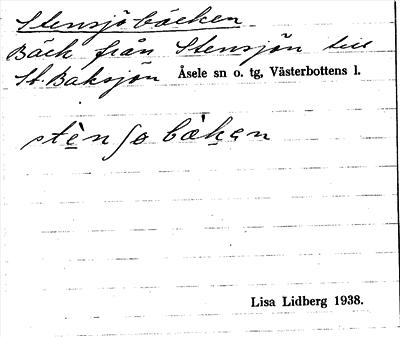 Stensjöbäcken
Bäck från Stensjön till
St. Baksjön Åsele sn o. tg, Västerbottens l.
stèn ʃo bæ̀ḱen
Lisa Lidberg 1938.